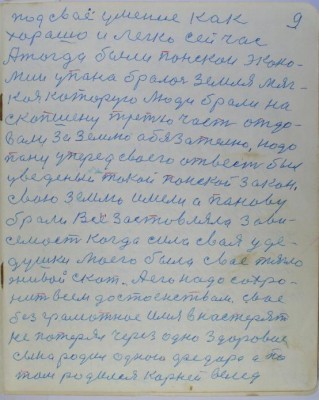 9
под сваё умение как
харашо и легко сей час
А тогда были понской Эконо-
мии у пана бралос земля мяг-
кая которую люди брали на
скопшену третую часть отдо-
вали за землю абязателно, надо
пану уперед своего отвесть был
уведеный такой понской закон,
свою землю имели а панову
брали Всё застовляла зави-
семость когда сила свая у де-
душки моего была своё тягло
живой скот. А его надо сохро-
нить всем достоенствам. свае
без грамотное имя в настерят
не потерял через одно здоровие
сына родил одного федора а по
том родился Карней вслед